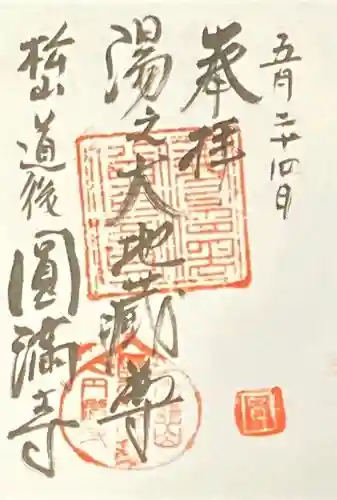 五月二十四日
奉拝
湯之大地蔵尊
松山道後
圓満寺